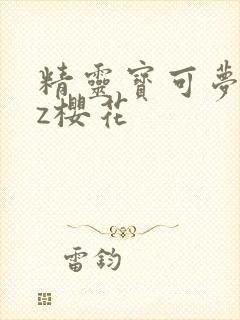 精靈寶可夢
z櫻花
雷鈞